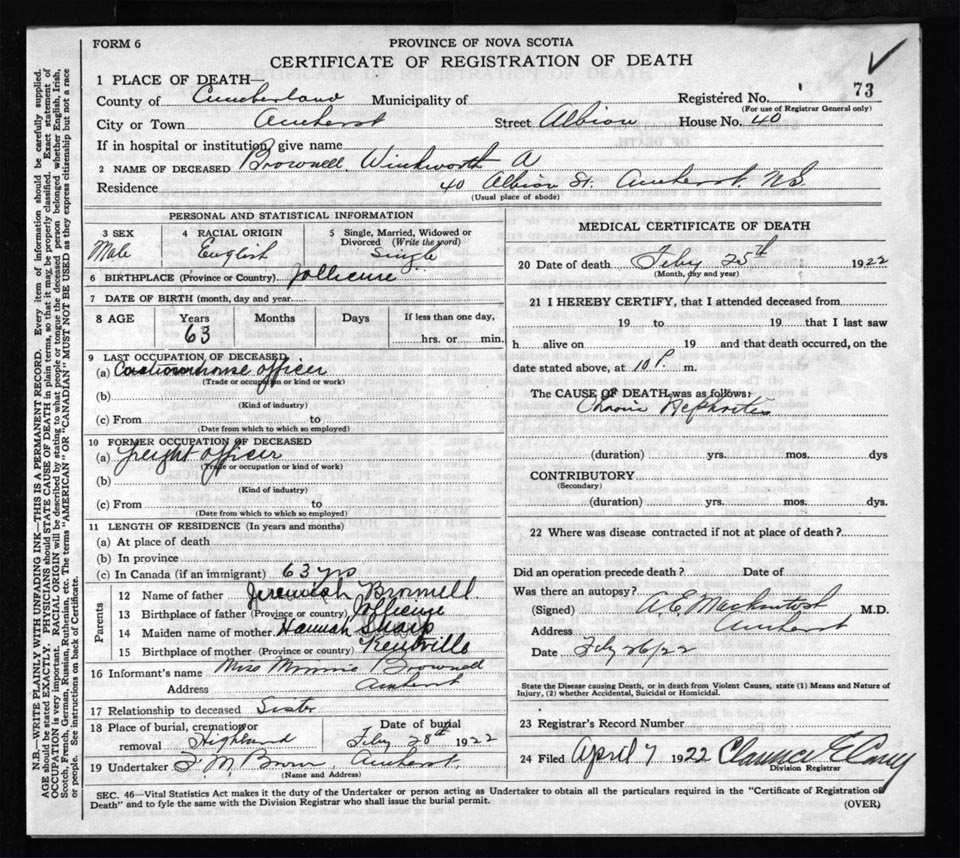 FORM 6
PROVINCE OF NOVA SCOTIA
CERTIFICATE OF REGISTRATION OF DEATH
1 PLACE OF DEATH—
County of Cumberland Municipality of Registered No. 73
(For use of Registrar General only)
City or Town Amherst Street Albion House No. 40
If in hospital or institution, give name
2 NAME OF DECEASED Brownell, Winkworth A
Residence 40 Albion St. Amherst. N.S.
(Usual place of abode)
PERSONAL AND STATISTICAL INFORMATION
3 SEX 4 RACIAL ORIGIN 5 Single, Married, Widowed or
Divorced (Write the word)
Male English Single
6 BIRTHPLACE (Province or Country) Jollicure
7 DATE OF BIRTH (month, day and year)
8 AGE Years Months Days If less than one day,
63 hrs. or min.
9 LAST OCCUPATION OF DECEASED
(a) officer
(Trade or occupation or kind or work)
(b)
(Kind of industry)
(c) From to
(Date from which to which so employed)
10 FORMER OCCUPATION OF DECEASED
(a) freight officer
(Trade or occupation or kind of work)
(b)
(Kind of industry)
(c) From to
(Date from which to which so employed)
11 LENGTH OF RESIDENCE (In years and months)
(a) At place of death
(b) In province
(c) In Canada (if an immigrant) 63 yrs
Parents
12 Name of father Jeremiah Brownell
13 Birthplace of father (Province or country) Jollicure
14 Maiden name of mother Hannah Sharp
15 Birthplace of mother (Province or country) Kentville
16 Informant's name Miss Minnie Brownell
Address Amherst
17 Relationship to deceased Sister
18 Place of burial, cremation or Date of burial
removal Highland Feby 28th 1922
19 Undertaker F. M. Brown, Amherst,
(Name and Address)
MEDICAL CERTIFICATE OF DEATH
20 Date of death Feby 25th 1922
(Month, day and year)
21 I HEREBY CERTIFY, that I attended deceased from
19 to 19 that I last saw
h alive on 19 and that death occurred, on the
date stated above, at 10 P. m.
The CAUSE OF DEATH was as follows:
Chronic Nephrites
(duration) yrs. mos. dys
CONTRIBUTORY
(Secondary)
(duration) yrs. mos. dys.
22 Where was disease contracted if not at place of death?
Did an operation precede death? Date of
Was there an autopsy?
(Signed) A. E. Mackintosh M.D.
Address Amherst
Date Feby 26/22
State the Disease causing Death, or in death from Violent Causes, state (1) Means and Nature of
Injury, (2) whether Accidental, Suicidal or Homicidal.
23 Registrar's Record Number
24 Filed April 7 1922 Clarence E Casey
Division Registrar
SEC. 46—Vital Statistics Act makes it the duty of the Undertaker or person acting as Undertaker to obtain all the particulars required in the "Certificate of Registration of
Death" and to fyle the same with the Division Registrar who shall issue the burial permit.
(OVER)
N.B.—WRITE PLAINLY WITH UNFADING INK—THIS IS A PERMANENT RECORD. Every item of information should be carefully supplied.
AGE should be stated EXACTLY. PHYSICIANS should STATE CAUSE OF DEATH in plain terms, so that it may be properly classified. Exact statement of
OCCUPATION is very important. RACIAL ORIGIN will be described by stating to what people or tongue the deceased person belonged whether English, Irish,
Scotch, French, German, Russian, Ruthenian, etc. The terms "AMERICAN" OR "CANADIAN" MUST NOT BE USED as they express citizenship but not a race
or people. See instructions on back of Certificate.